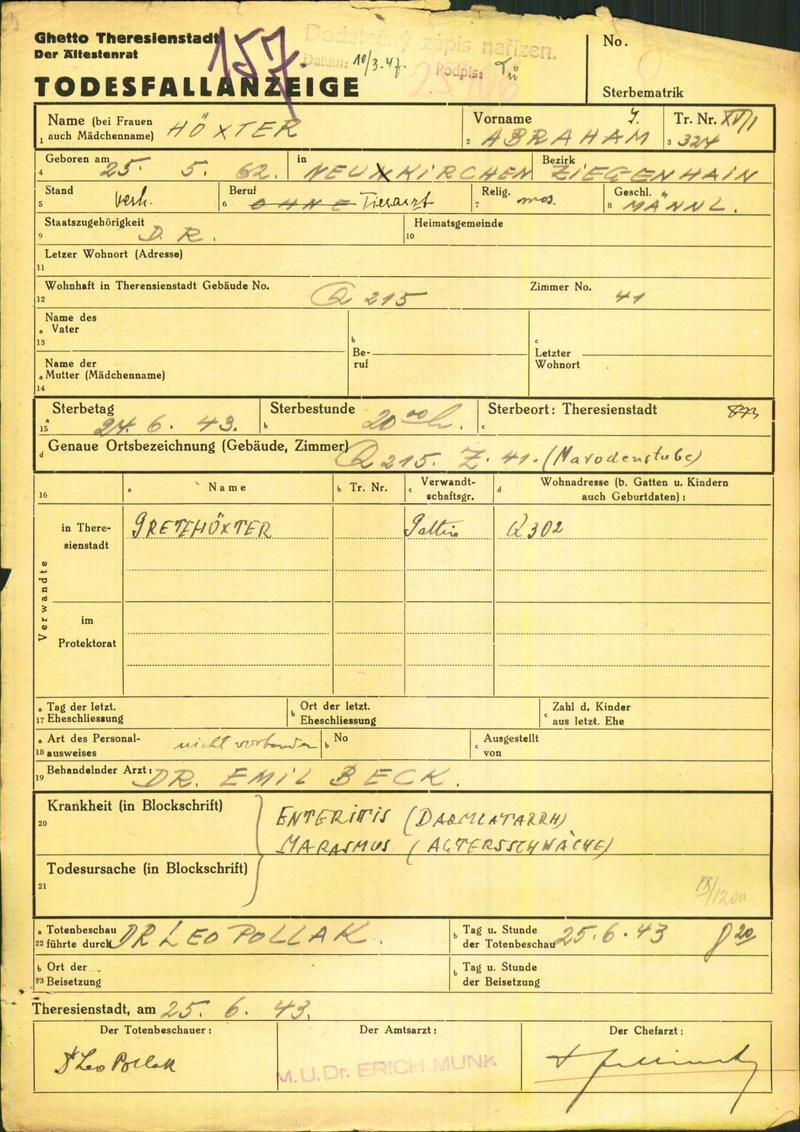 Ghetto Theresienstadt
Der Ältestenrat
TODESFALLANZEIGE
157
Dodatečný zápis nařízen.
Datum: 10/3.47.
Podpis:
No.
Sterbematrik
Name (bei Frauen
1 auch Mädchenname) HÖXTER
Vorname
2 ABRAHAM
Tr. Nr. XV/1
3 324
Geboren am
4 25. 5. 62.
in NEUKIRCHEN
Bezirk ZIEGENHAIN
Stand
5 verh.
Beruf
6 OHNE Tierarzt
Relig.
7 mos.
Geschl.
8 MÄNNL.
Staatszugehörigkeit
9 D. R.
Heimatsgemeinde
10
Letzer Wohnort (Adresse)
11
Wohnhaft in Therensienstadt Gebäude No.
12 Q 215
Zimmer No. 41
Name des
a Vater
13
b
Be-
ruf
c
Letzter
Wohnort
Name der
a Mutter (Mädchenname)
14
Sterbetag
15 a 24. 6. 43.
Sterbestunde
b 20 00 h.
Sterbeort: Theresienstadt
c
Genaue Ortsbezeichnung (Gebäude, Zimmer)
d Q 215. Z. 41. (Marodenstube)
16
a Name
b Tr. Nr.
c Verwandt-
schaftsgr.
d Wohnadresse (b. Gatten u. Kindern
auch Geburtdaten):
Verwandte
in There-
sienstadt
GRETE HÖXTER
Gattin
Q 302
im
Protektorat
a Tag der letzt.
17 Eheschliessung
b Ort der letzt.
Eheschliessung
c Zahl d. Kinder
aus letzt. Ehe
a Art des Personal-
18 ausweises nicht vorhanden
b No
c Ausgestellt
von
Behandelnder Arzt:
19 DR. EMIL BECK.
Krankheit (in Blockschrift)
20
ENTERITIS (DARMKATARRH)
MARASMUS (ALTERSSCHWÄCHE)
Todesursache (in Blockschrift)
21
a Totenbeschau
22 führte durch DR LEO POLLAK.
b Tag u. Stunde
der Totenbeschau 25. 6. 43 8 20
b Ort der
23 Beisetzung
b Tag u. Stunde
der Beisetzung
Theresienstadt, am 25. 6. 43.
Der Totenbeschauer:
Dr Leo Pollak
Der Amtsarzt:
M.U.Dr. ERICH MUNK
Der Chefarzt: